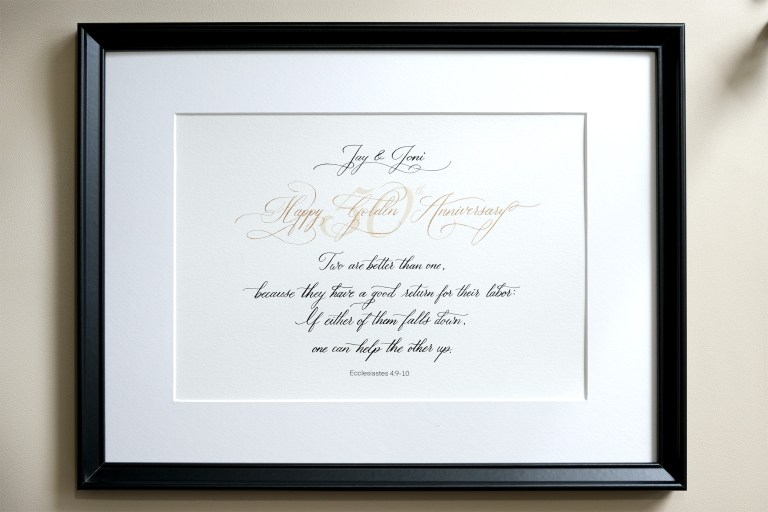 Jay & Joni
Happy Golden Anniversary
50th
Two are better than one,
because they have a good return for their labor:
If either of them falls down,
one can help the other up.
Ecclesiastes 4:9-10